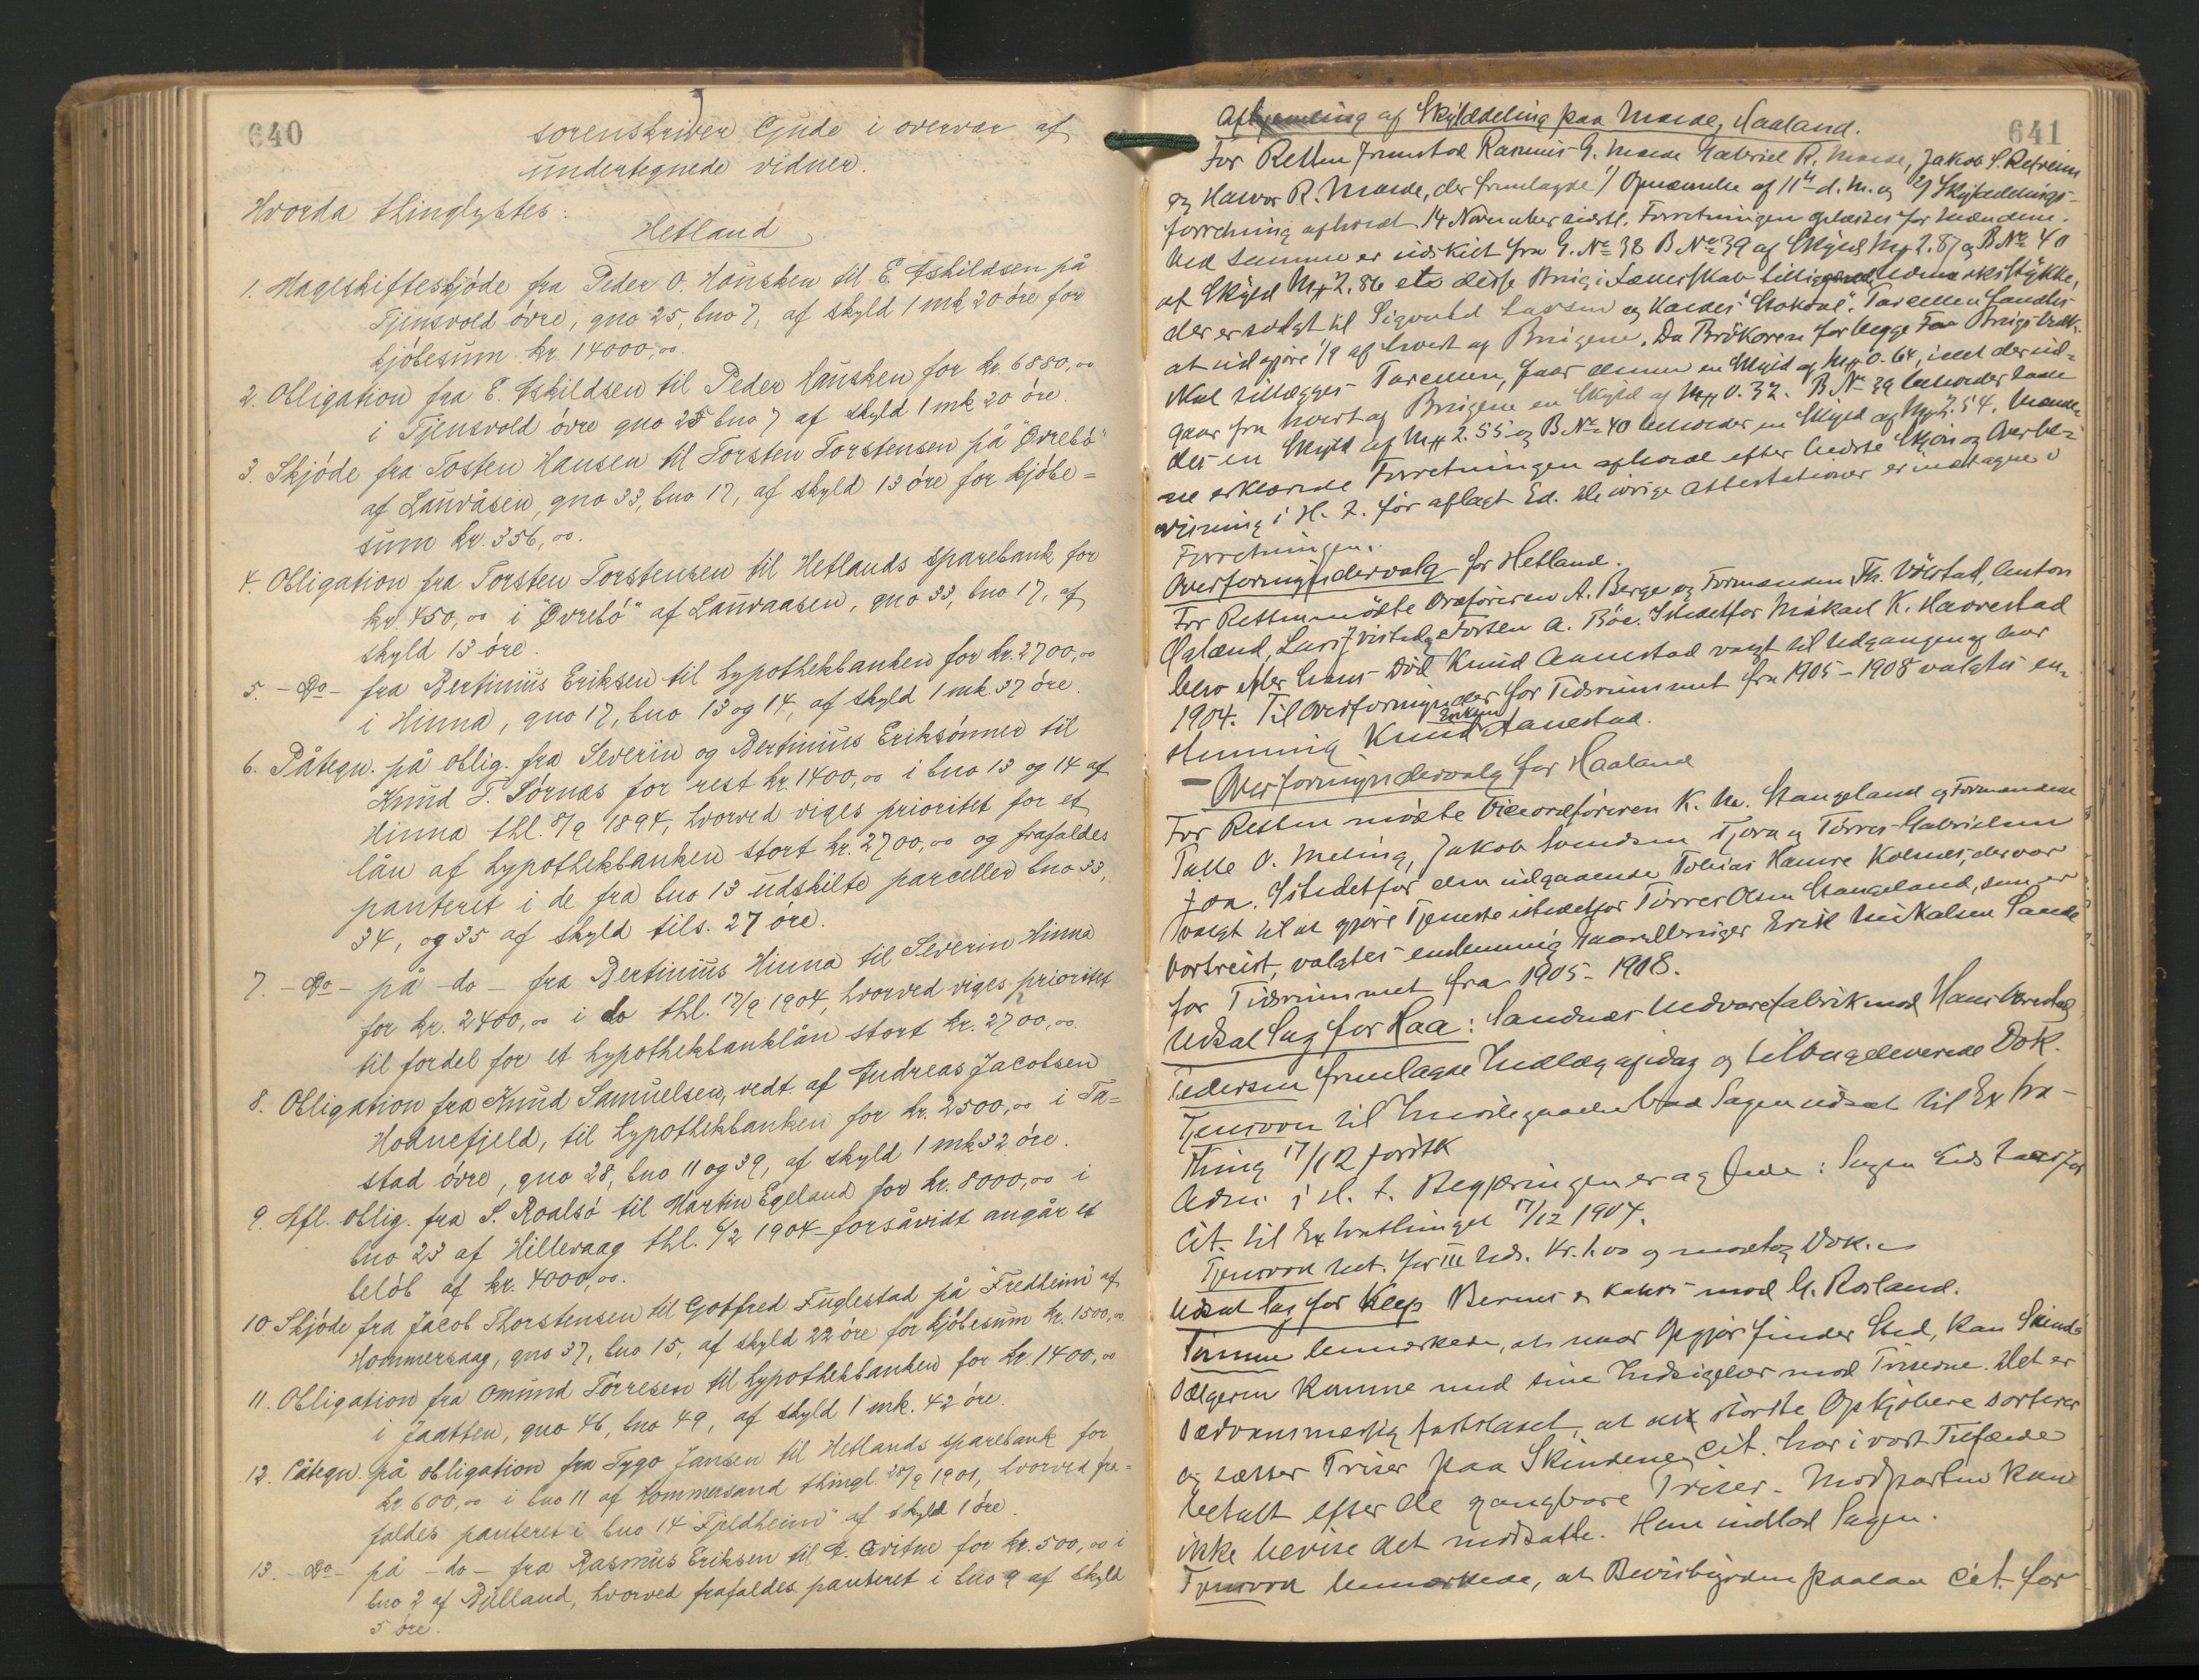 640
sorenskriver Gjude i overvær af
undertegnede vidner.
Hvorda thinglystes:
Hetland
1. Mageskifteskjóde fra Peder O. Hausken til E. Eskildsen på
Tjensvold óvre, gno 25, bno 7, af skyld 1 mk 20 óre for
kjóbesum kr. 14000,00
2. Obligation fra E. Eskildsen til Peder Hausken for kr. 6880,00
i Tjensvold óvre gno 25 bno 7 af skyld 1 mk 20 óre.
3. Skjóde fra Tosten Hansen til Torsten Torstensen på "Óvrebó"
af Lauvåsen, gno 33, bno 17, af skyld 13 óre for kjóbe=
sum kr. 356,00.
4. Obligation fra Torsten Torstensen til Hetlands sparebank for
kr. 450,00 i "Óvrebó" af Lauvaasen, gno 33, bno 17, af
skyld 13 óre.
5. - Do - fra Bertinius Eriksen til hypothekbanken for kr. 2700,00
i Hinna, gno 17, bno 13 og 14, af skyld 1 mk 37 óre.
6. Påtegn. på oblig. fra Severin og Bertinius Eriksónner til
Knud T. Sórnæs for rest kr. 1400,00 i bno 13 og 14 af
Hinna thl. 8/9 1894, hvorved viges prioritet for et
lån af hypothekbanken stort kr. 2700,00 og frafaldes
panteret i de fra bno 13 udskilte parceller bno 33,
34, og 35 af skyld tils. 27 óre.
7. - Do - på - do - fra Bertinius Hinna til Severin Hinna
for kr. 2400,00 i do thl. 17/9 1904, hvorved viges prioritet
til fordel for et hypothekbanklån stort kr. 2700,00
8. Obligation fra Knud Samuelsen, vedt. af Andreas Jacobsen
Hodnefjeld, til hypothekbanken for kr. 2500,00 i Ta=
stad óvre, gno 28, bno 11 og 39, af skyld 1 mk 32 óre.
9. Afl. oblig. fra S. Roalsó til Martin Egeland for kr. 8000,00 i
bno 23 af Hillevaag thl. 6/2 1904 - forsåvidt angår et
belób af kr. 4000,00.
10 Skjóde fra Jacob Thorstensen til Gotfred Fuglestad på "Fredheim" af
Hommersaag, gno 37, bno 15, af skyld 22 óre for kjóbesum kr. 1500,00
11. Obligation fra Omund Tórresen til hypothekbanken for kr. 1400,00
i Jaatten, gno 46, bno 49, af skyld 1 mk. 42 óre.
12. Påtegn. på obligation fra Tygo Jansen til Hetlands sparebank for
kr 600,00 i bno 11 af Hommersand thingl. 28/9 1901, hvorved fra=
faldes panteret i bno 14 "Fjeldheim" af skyld 1 óre.
13. - Do - på - do - fra Rasmus Eriksen til A. Qvitne for kr. 500,00 i
bno 2 af Bjelland, hvorved frafaldes panteret i bno 9 af skyld
5 óre.
641
Afhjemling af Skylddeling paa Meling, Haaland.
For Retten fremstod Rasmus G. Gabriel R. Jakob S. Refheim
og Halvor R. der fremlagde 1/ Opnævnelse af 11te d. M. og 2/ Skylddelings-
forretning afholdt 14 November sidstl. Forretningen oplæstes for Mændene.
Ved samme er udskilt fra G. No 38 B No 39 af Skyld Mk 2.87 og B No 40
af Skyld Mk 2.86 disse Brug i Sameieskab tilliggende Udmarksstykke,
der er solgt til Sigvald Larsen og kaldes "Stokdal". Parcellen fandtes
at udgjøre 1/9 af hvert af Brugene. Da for begge Brugs
skal tillægges Parcellen, faar denne en Skyld af Mk 0.64, idet der ud=
gaar fra hvert af Brugene en Skyld af Mk 0.32. B No 39 beholder saale
des en Skyld af Mk 2.55 og B No 40 beholder en Skyld af Mk 2.54. Mænde=
ne erklærede Forretningen afholdt efter bedste Skjøn og Overbe=
visning i H. t. før aflagt Ed. De øvrige Attestationer er indtagne i
Forretningen.
Overformyndervalg for Hetland.
For Retten mødte Ordføreren A. Berge og Formændene Th. Vølstad, Anton
Øgland, Lars og Torsten A. Bøe. Istedetfor Mikael K. Haavestad
blev efter hans Død Knud Aanestad valgt til Udgangen af Aar
1904. Til Overformynder for Tidsrummet fra 1905-1908 valgtes en=
stemmig Knud Aanestad.
- Overformyndervalg for Haaland
For Retten mødte Viceordføreren K. M. Stangeland og Formændene
Talle O. Meling, Jakob Svendsen Tjora og Tørres Gabrielsen
Joa. Istedetfor den udgaaende Tobias Hamre Kolnes, der var
valgt til at gjøre Tjeneste istedetfor Tørres Olsen Stangeland, som er
bortreist, valgtes enstemmig Gaardbruger Erik Mikalsen Sande
for Tidsrummet fra 1905-1908.
Udsat Sag for Haa: Sandnæs Uldvarefabrik mod Hans
Pedersen fremlagde Indlæg af idag og tilbageleverede Dok.
Tjensvoll til Imødegaaelse bad Sagen udsat til Extra-
thing 17/12 førstk
Adm. i H. t. Begjæringen eragtede: Sagen Uds. Tages for
Cit. til Extrathinget 17/12 1904.
Tjensvoll bet. for III Uds. Kr. 1.00 og modtog Dok.
Udsat Sag for Klep Berner & Kahrs mod G. Rosland.
Simme bemærkede, at naar Opgjør finder Sted, kan Skind=
sælgeren komme med sine Indsigelser mod Priserne. Det er
sædvansmæssig fastslaaet, at de største Opkjøbere sorterer
og sætter Priser paa Skindene. Cit. har i vort Tilfælde
betalt efter de gangbare Priser. Modparten kan
ikke bevise det modsatte. Han indlod Sagen.
Tjensvoll bemærkede, at Bevisbyrden paalaa Cit. for